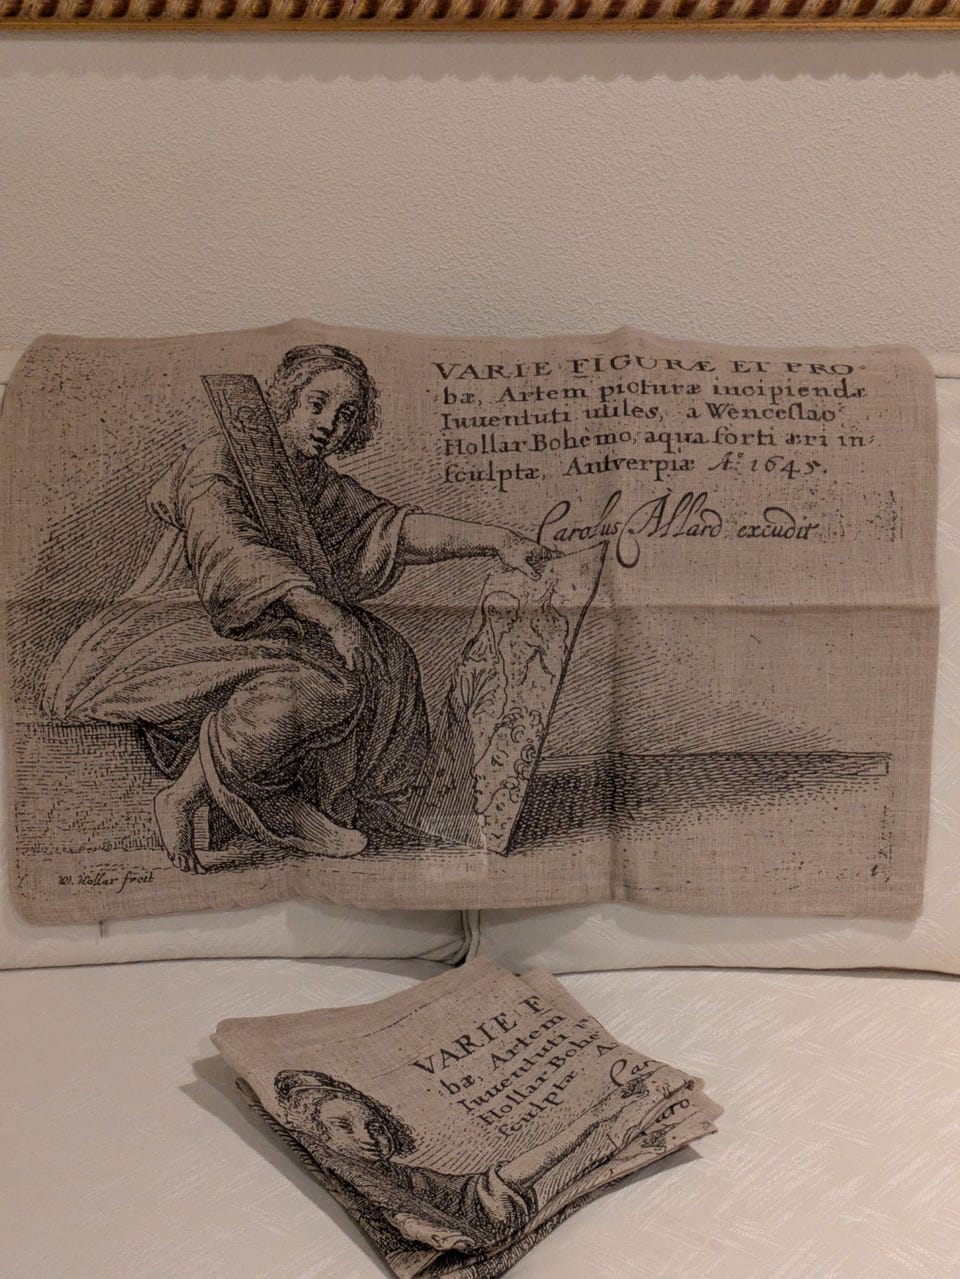 VARIE FIGURÆ ET PRO-
bæ, Artem picturæ incipiendæ
Iuuentuti utiles, a Wenceslao
Hollar Bohemo, aqua forti æri in-
sculptæ, Antverpiæ Aº 1645.
Carolus Allard excudit
W. Hollar fecit
VARIE F
bæ, Artem
Iuuentuti
Hollar Bohe
sculptæ. A
Car